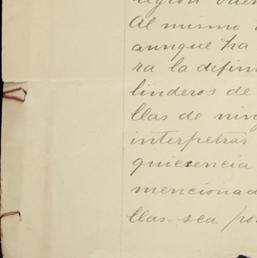 region
Al mismo
aunque ha
ra la defin
linderos de
llas de nin
interpetras
quiesencia
mencionad
llas sea po